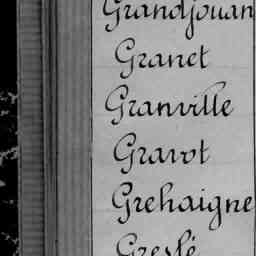 Grandjouan
Granet
Granville
Gravot
Grehaigne
Greslé